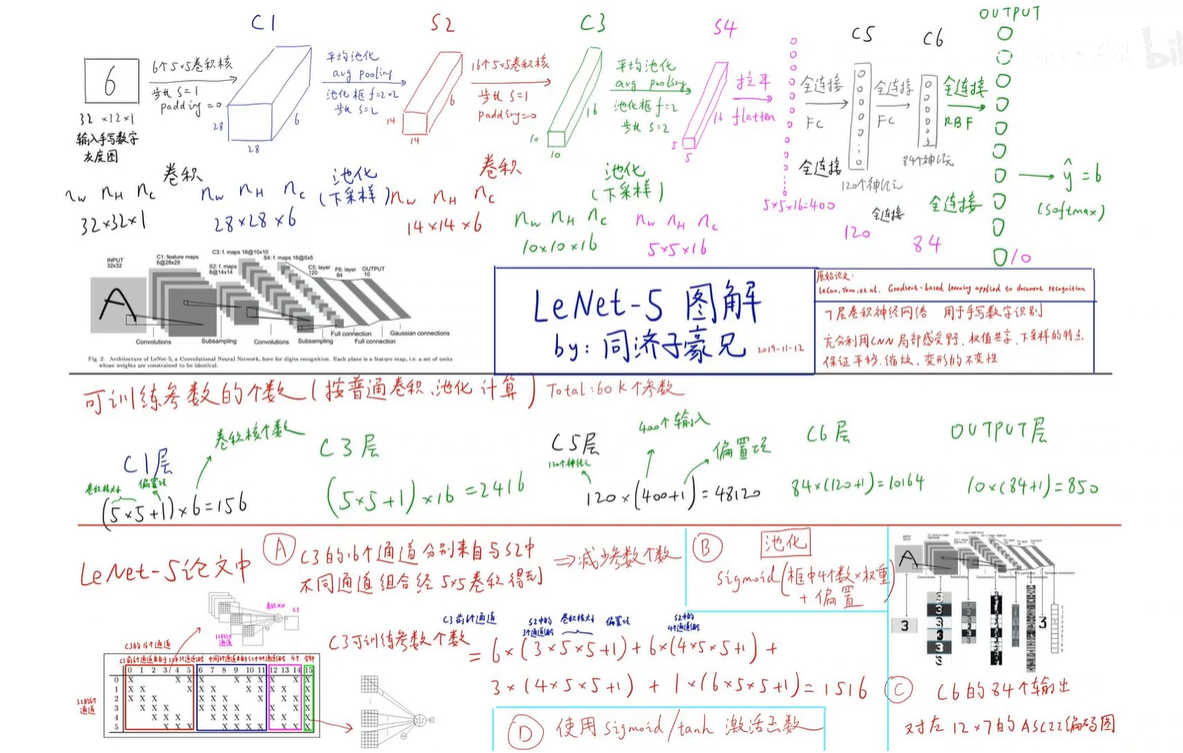 C1
S2
C3
S4
C5
C6
OUTPUT
6
32×12×1
输入手写数字
灰度图
6个5×5卷积核
步长 S=1
padding=0
28
28
6
平均池化
avg pooling
池化框 f=2×2
步长 S=2
14
14
6
16个5×5卷积核
步长 S=1
padding=0
10
10
16
平均池化
avg pooling
池化框 f=2
步长 S=2
5
5
16
拉平
flatten
5×5×16=400
全连接
FC
全连接
120个神经元
全连接
FC
84个神经元
全连接
RBF
全连接
120
84
全连接
10
ŷ=6
(softmax)
卷积
池化
(下采样)
卷积
池化
(下采样)
nW nH nC
32×32×1
nW nH nC
28×28×6
nW nH nC
14×14×6
nW nH nC
10×10×16
nW nH nC
5×5×16
INPUT
32x32
C1: feature maps
6@28x28
S2: f. maps
6@14x14
C3: f. maps 16@10x10
S4: f. maps 16@5x5
C5: layer
120
F6: layer
84
OUTPUT
10
Convolutions
Subsampling
Convolutions
Subsampling
Full connection
Full connection
Gaussian connections
Fig. 2. Architecture of LeNet-5, a Convolutional Neural Network, here for digits recognition. Each plane is a feature map, i.e. a set of units
whose weights are constrained to be identical.
LeNet-5 图解
by: 同济子豪兄 2019-11-12
原始论文:
LeCun, Yann, et al. Gradient-based learning applied to document recognition
7层卷积神经网络 用于手写数字识别
充分利用CNN局部感受野、权值共享、下采样的特点
保证平移、缩放、变形的不变性
可训练参数的个数(按普通卷积、池化计算) Total:60K个参数
C1层
卷积核个数
卷积核大小
偏置项
(5×5+1)×6=156
C3层
(5×5+1)×16=2416
C5层
120个神经元
400个输入
偏置项
120×(400+1)=48120
C6层
84×(120+1)=10164
OUTPUT层
10×(84+1)=850
LeNet-5论文中
A
C3的16个通道分别来自与S2中
不同通道组合经5×5卷积得到
⇒减少参数个数
B
池化
sigmoid(框中4个数×权重
+偏置
C3的16个通道
0 1 2 3 4 5 6 7 8 9 10 11 12 13 14 15
0
1
2
3
4
5
C3可训练参数个数
C3前6个通道
卷积核大小
偏置项
=6×(3×5×5+1)+6×(4×5×5+1)+
3×(4×5×5+1)+1×(6×5×5+1)=1516
D
使用sigmoid/tanh 激活函数
A
3
3
C
C6的84个输出
对应12×7的ASCII编码图